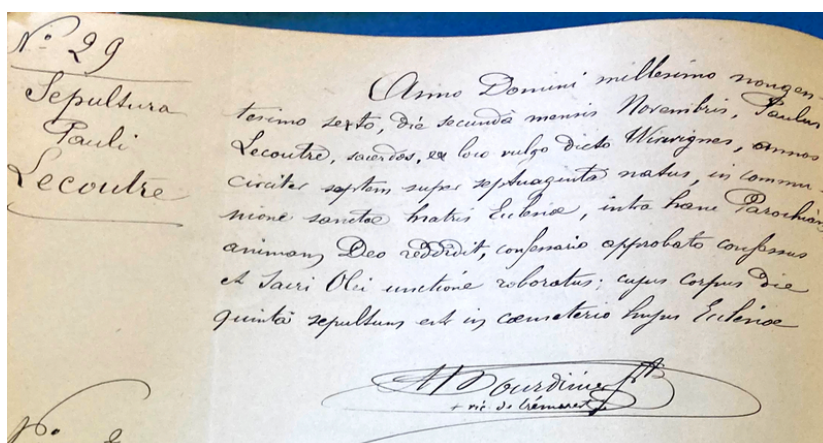 N° 29
Sepultura
Pauli
Lecoutre
Anno Domini millesimo nongen-
tesimo sexto, die secundâ mensis Novembris, Paulus
Lecoutre, sacerdos, ex loco vulgo dicto Wirwignes, annos
circiter septem super septuaginta natus, in commu-
nione sanctae Matris Ecclesiae, intra hanc Parochiam
animam Deo reddidit, confessario approbato confessus
et Sacri Olei unctione roboratus; cujus corpus die
quintâ sepultum est in caemeterio hujus Ecclesiae
vic. de Crémarest
N°